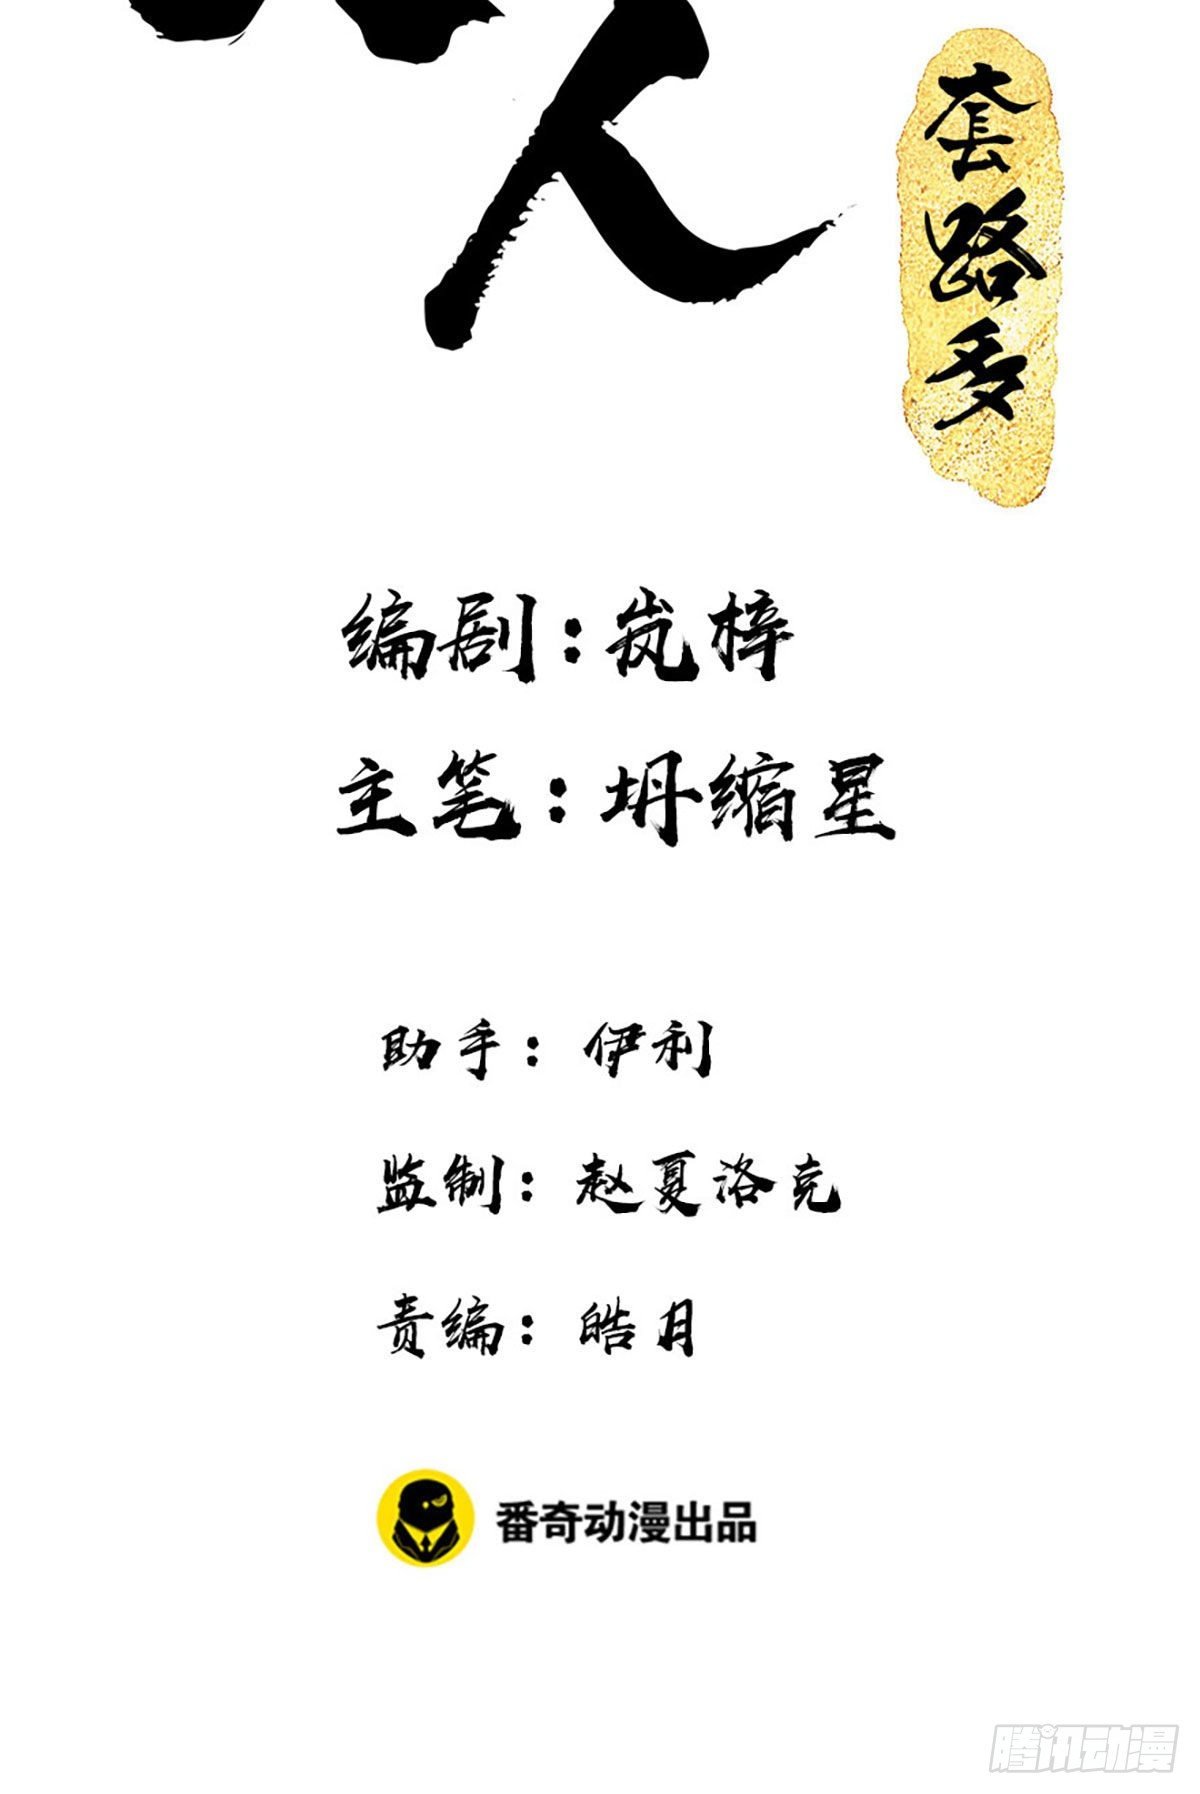 人
套路多
编剧：岚梓
主笔：坍缩星
助手：伊利
监制：赵夏洛克
责编：皓月
番奇动漫出品
腾讯动漫